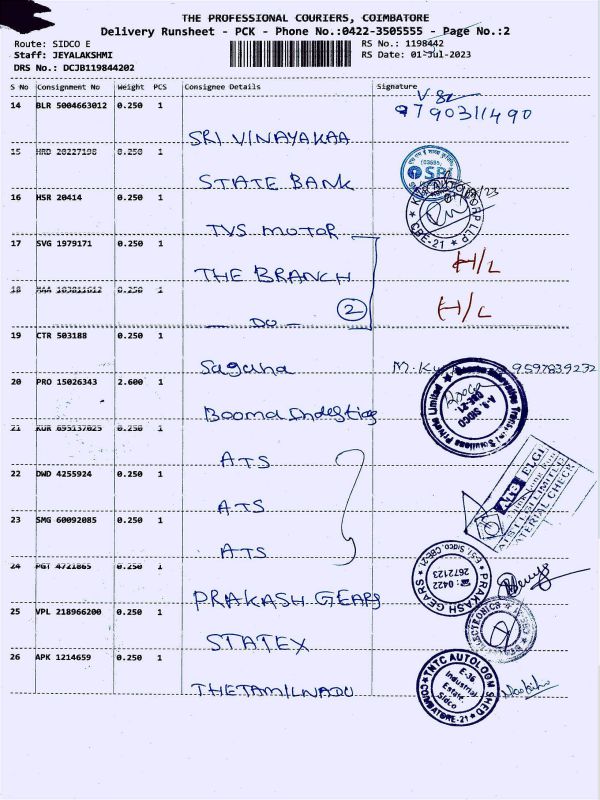 THE PROFESSIONAL COURIERS, COIMBATORE
Delivery Runsheet - PCK - Phone No.:0422-3505555 - Page No.:2
Route: SIDCO E
RS No.: 1198442
Staff: JEYALAKSHMI
RS Date: 01-Jul-2023
DRS No.: DCJB119844202
S No Consignment No Weight PCS Consignee Details Signature
14 BLR 5004663012 0.250 1
9790311490
SRI VINAYAKAA
15 HRD 20227198 0.250 1
SBI
STATE BANK
16 HSR 20414 0.250 1
CBE-21
TVS MOTOR
17 SVG 1979171 0.250 1
THE BRANCH H/L
18 0.250 1
DO 2 H/L
19 CTR 503188 0.250 1
Sagana 9597839232
20 PRO 15026343 2.600 1
Private Limited
SIDCO
CBE-21
21 KUR 695137025 0.250 1
ATS
22 DWD 4255924 0.250 1
ATS ELGI
ATS
MATERIAL CHECK
23 SMG 60092085 0.250 1
ATS
24 PGT 4721865 0.250 1
PRAKASH GEARS
0422
2672123
PRAKASH GEARS
25 VPL 218966200 0.250 1
STATEX
ELECTRONICS
26 APK 1214659 0.250 1
THETAMILNADU
TNTC AUTOLOOM SHED
E-36
Industrial
Estate,
Sidco
COIMBATORE-21